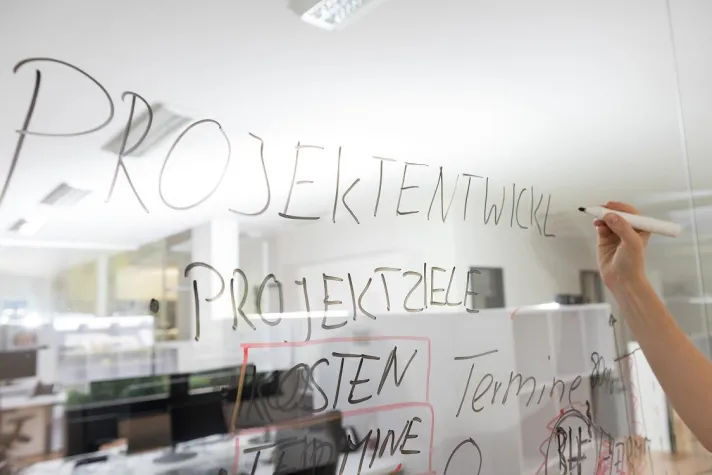 PROJEKTENTWICKL
• PROJEKTZIELE
KOSTEN
Termine
TERMINE